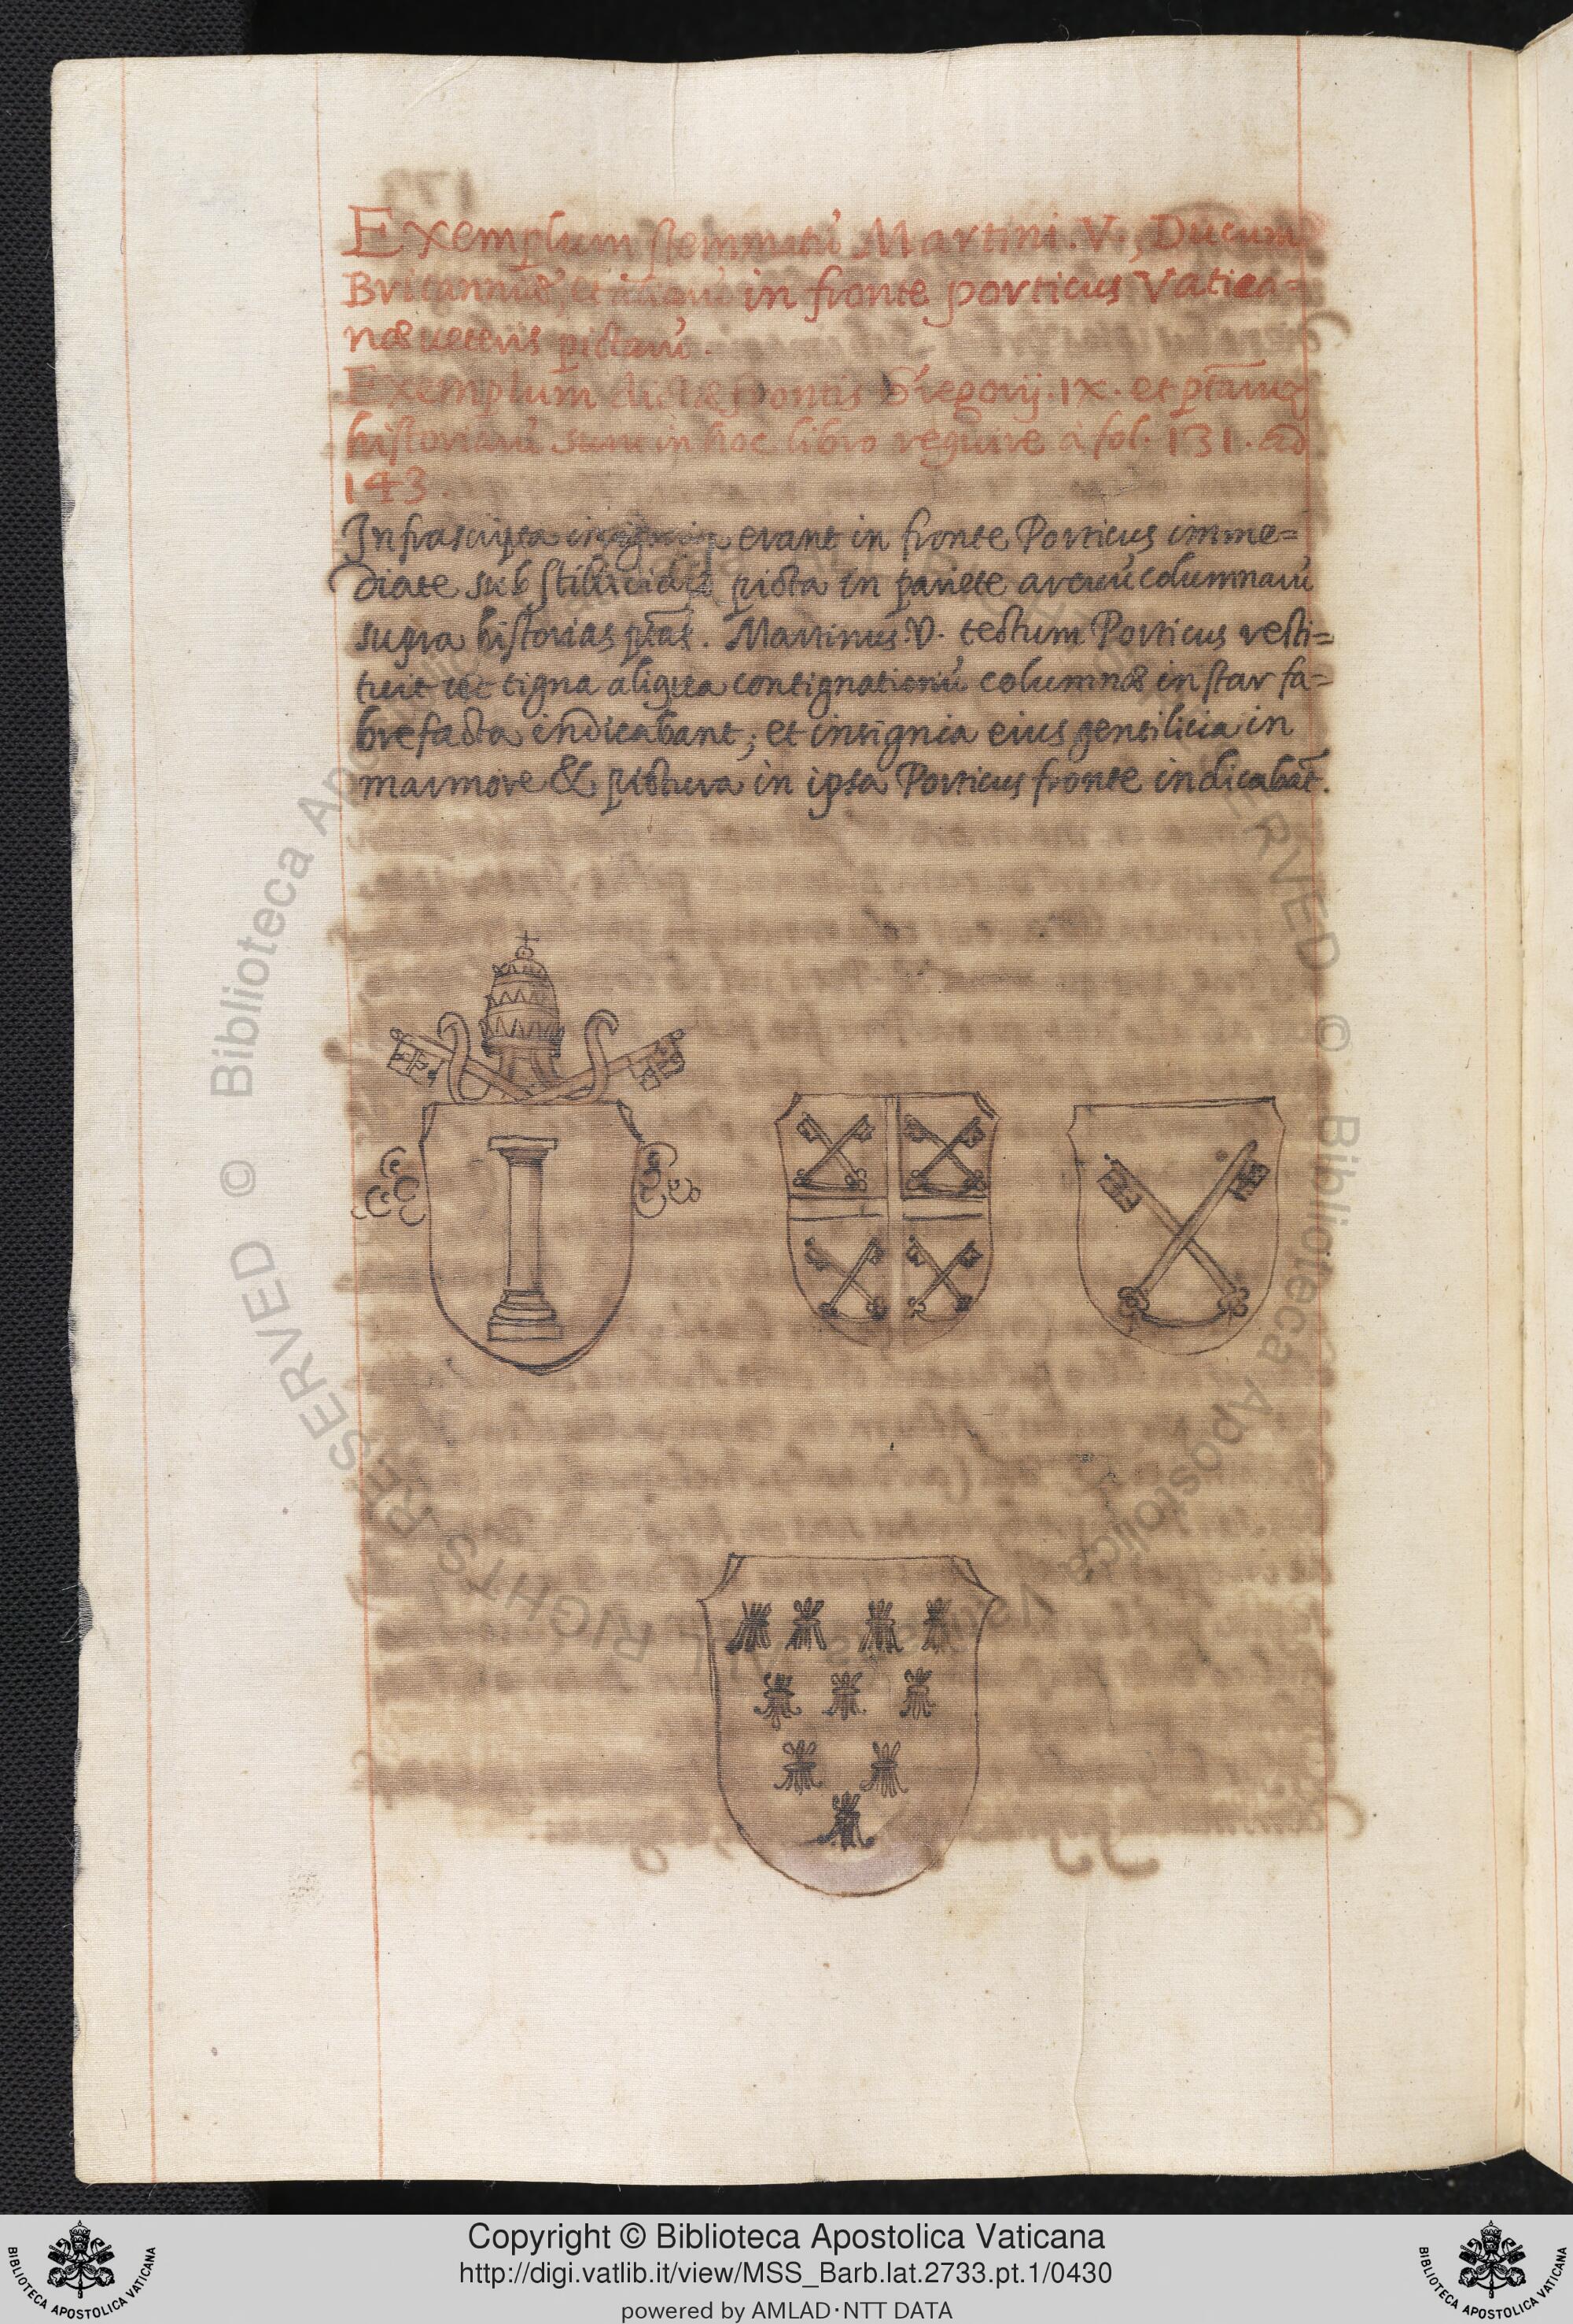 Exemplum stemmatū Martini. V., Ducum
Britanniæ, et aliquū in fronte porticus Vatica=
næ ueteris pictarū.
Exemplum dictæ frontis Gregorij. IX. et
historiarū in hoc libro require à fol. 131. ad
143.
Infrascripta insignia erant in fronte Porticus imme=
diate sub stillicidijs picta in pariete arcuū columnarū
supra historias ptās. Martinus. V. tectum Porticus resti=
tuit ut tigna aliqua contignationū columnæ instar fa=
brefacta indicabant; et insignia eius gentilicia in
marmore & pictura in ipsa Porticus fronte indicabāt.
© Biblioteca Apostolica Vaticana ALL RIGHTS RESERVED
BIBLIOTECA APOSTOLICA VATICANA
Copyright © Biblioteca Apostolica Vaticana
http://digi.vatlib.it/view/MSS_Barb.lat.2733.pt.1/0430
powered by AMLAD·NTT DATA
BIBLIOTECA APOSTOLICA VATICANA